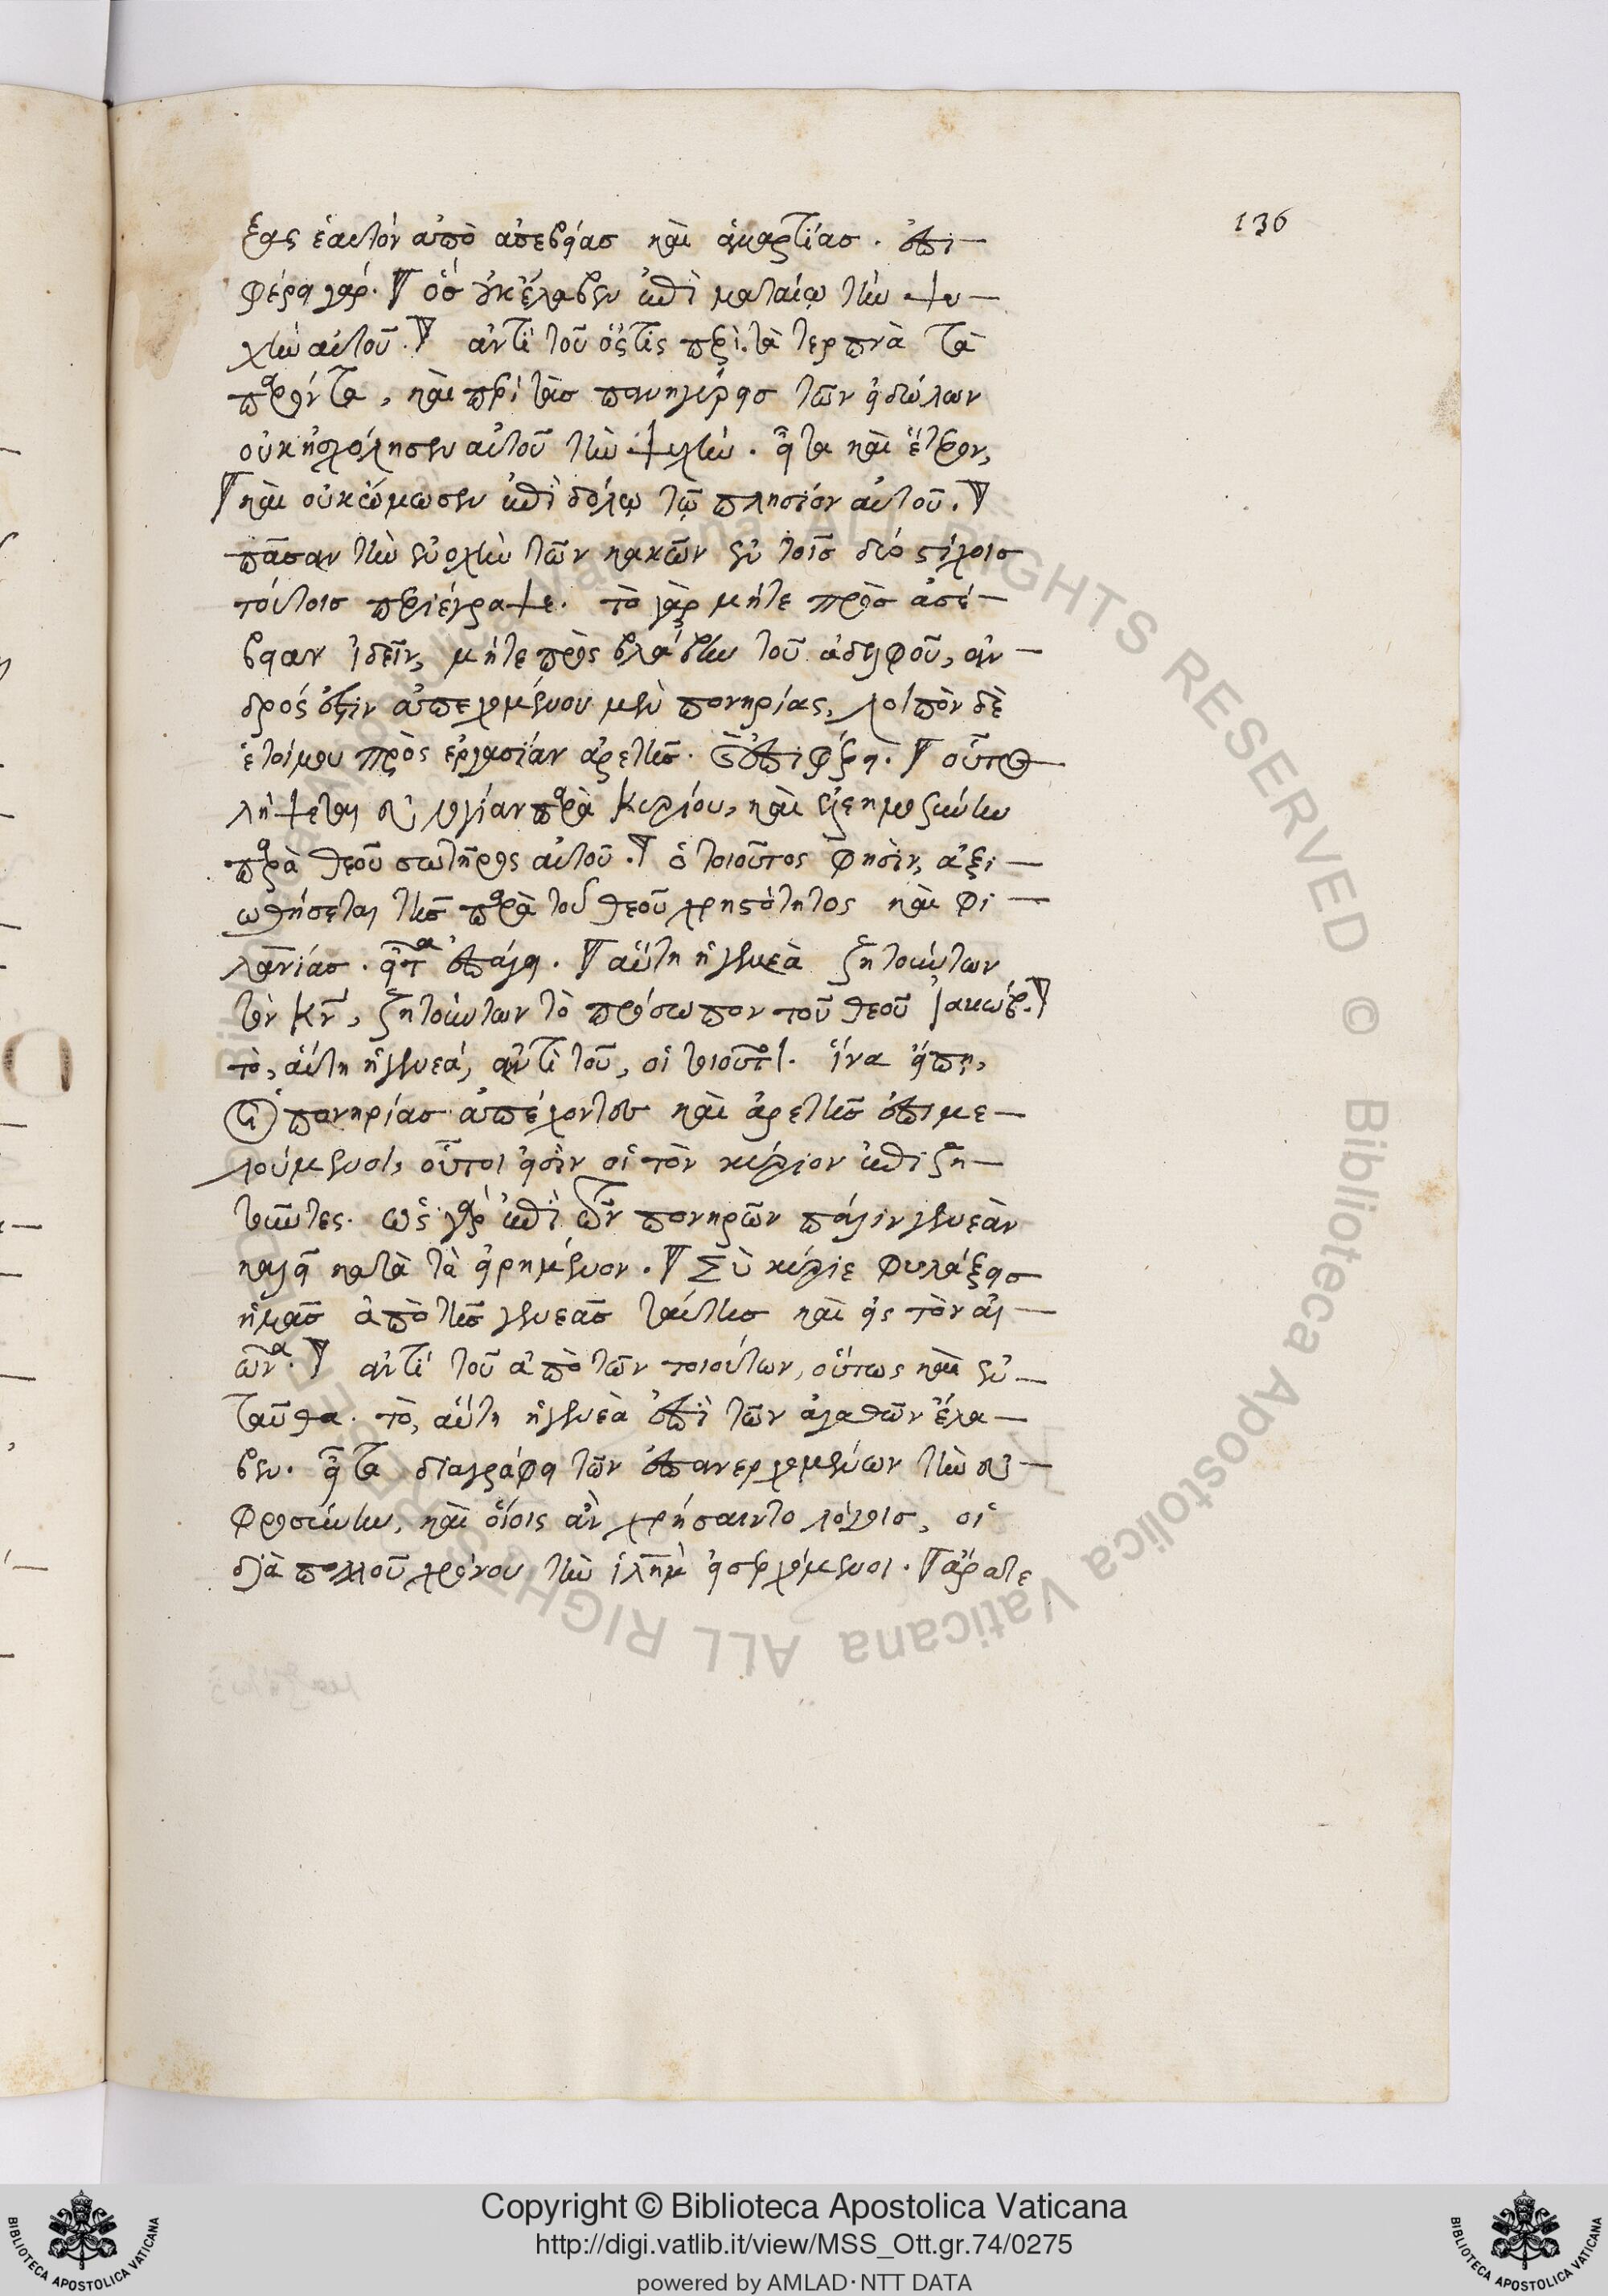 136
ξας ἑαυτὸν ἀπὸ ἀσεβείας καὶ ἁμαρτίας. ἐπι-
φέρει γάρ. ὃς οὐκ ἔλαβεν ἐπὶ ματαίῳ τὴν ψυ-
χὴν αὐτοῦ. ἀντὶ τοῦ ὅστις περὶ τὰ τερπνὰ τὰ
παρόντα, καὶ περὶ τὰς πανηγύρεις τῶν εἰδώλων
οὐκ ἠσχόλησεν αὐτοῦ τὴν ψυχήν. εἶτα καὶ ἕτερον,
καὶ οὐκ ὤμωσεν ἐπὶ δόλῳ τῷ πλησίον αὐτοῦ.
πᾶσαν τὴν ἐνοχὴν τῶν κακῶν ἐν τοῖς δύο στίχοις
τούτοις περιέγραψε. τὸ γὰρ μήτε πρὸς ἀσέ-
βειαν ἰδεῖν, μήτε πρὸς βλάβην τοῦ ἀδελφοῦ, ἀν-
δρός ἐστιν ἀπεχομένου μὲν πονηρίας, λοιπὸν δὲ
ἑτοίμου πρὸς ἐργασίαν ἀρετῆς. ἐπιφέρει. οὗτος
λήψεται εὐλογίαν παρὰ Κυρίου, καὶ ἐλεημοσύνην
παρὰ θεοῦ σωτῆρος αὐτοῦ. ὁ τοιοῦτος φησὶν, ἀξι-
ωθήσεται τῆς παρὰ τοῦ θεοῦ χρηστότητος καὶ φι-
λανίας. εἶτα ἐπάγει. αὕτη ἡ γενεὰ ζητούντων
τὸν κν, ζητούντων τὸ πρόσωπον τοῦ θεοῦ Ἰακώβ.
τὸ, αὕτη ἡ γενεά, ἀντὶ τοῦ, οἱ τοιοῦτοι. ἵνα εἴπῃ,
οἱ πονηρίας ἀπέχοντες καὶ ἀρετῆς ἐπιμε-
λούμενοι, οὗτοι εἰσὶν οἱ τὸν κύριον ἐπιζη-
τοῦντες. ὡς γὰρ ἐπὶ τῶν πονηρῶν πάλιν γενεὰν
καλεῖ κατὰ τὰ εἰρημένον. Σὺ κύριε φυλάξεις
ἡμᾶς ἀπὸ τῆς γενεᾶς ταύτης καὶ εἰς τὸν αἰ-
ῶνα. ἀντὶ τοῦ ἀπὸ τῶν τοιούτων, οὕτως καὶ ἐν-
ταῦθα. τὸ, αὕτη ἡ γενεὰ ἐπὶ τῶν ἀγαθῶν ἔλα-
βεν. εἶτα διαγράφει τῶν ἐπανερχομένων τὴν εὐ-
φροσύνην, καὶ οἵοις ἂν χρήσαιντο λόγοις, οἱ
διὰ πολλοῦ χρόνου τὴν ἱλημ εἰσερχόμενοι. ἄρατε
Copyright © Biblioteca Apostolica Vaticana
http://digi.vatlib.it/view/MSS_Ott.gr.74/0275
powered by AMLAD·NTT DATA